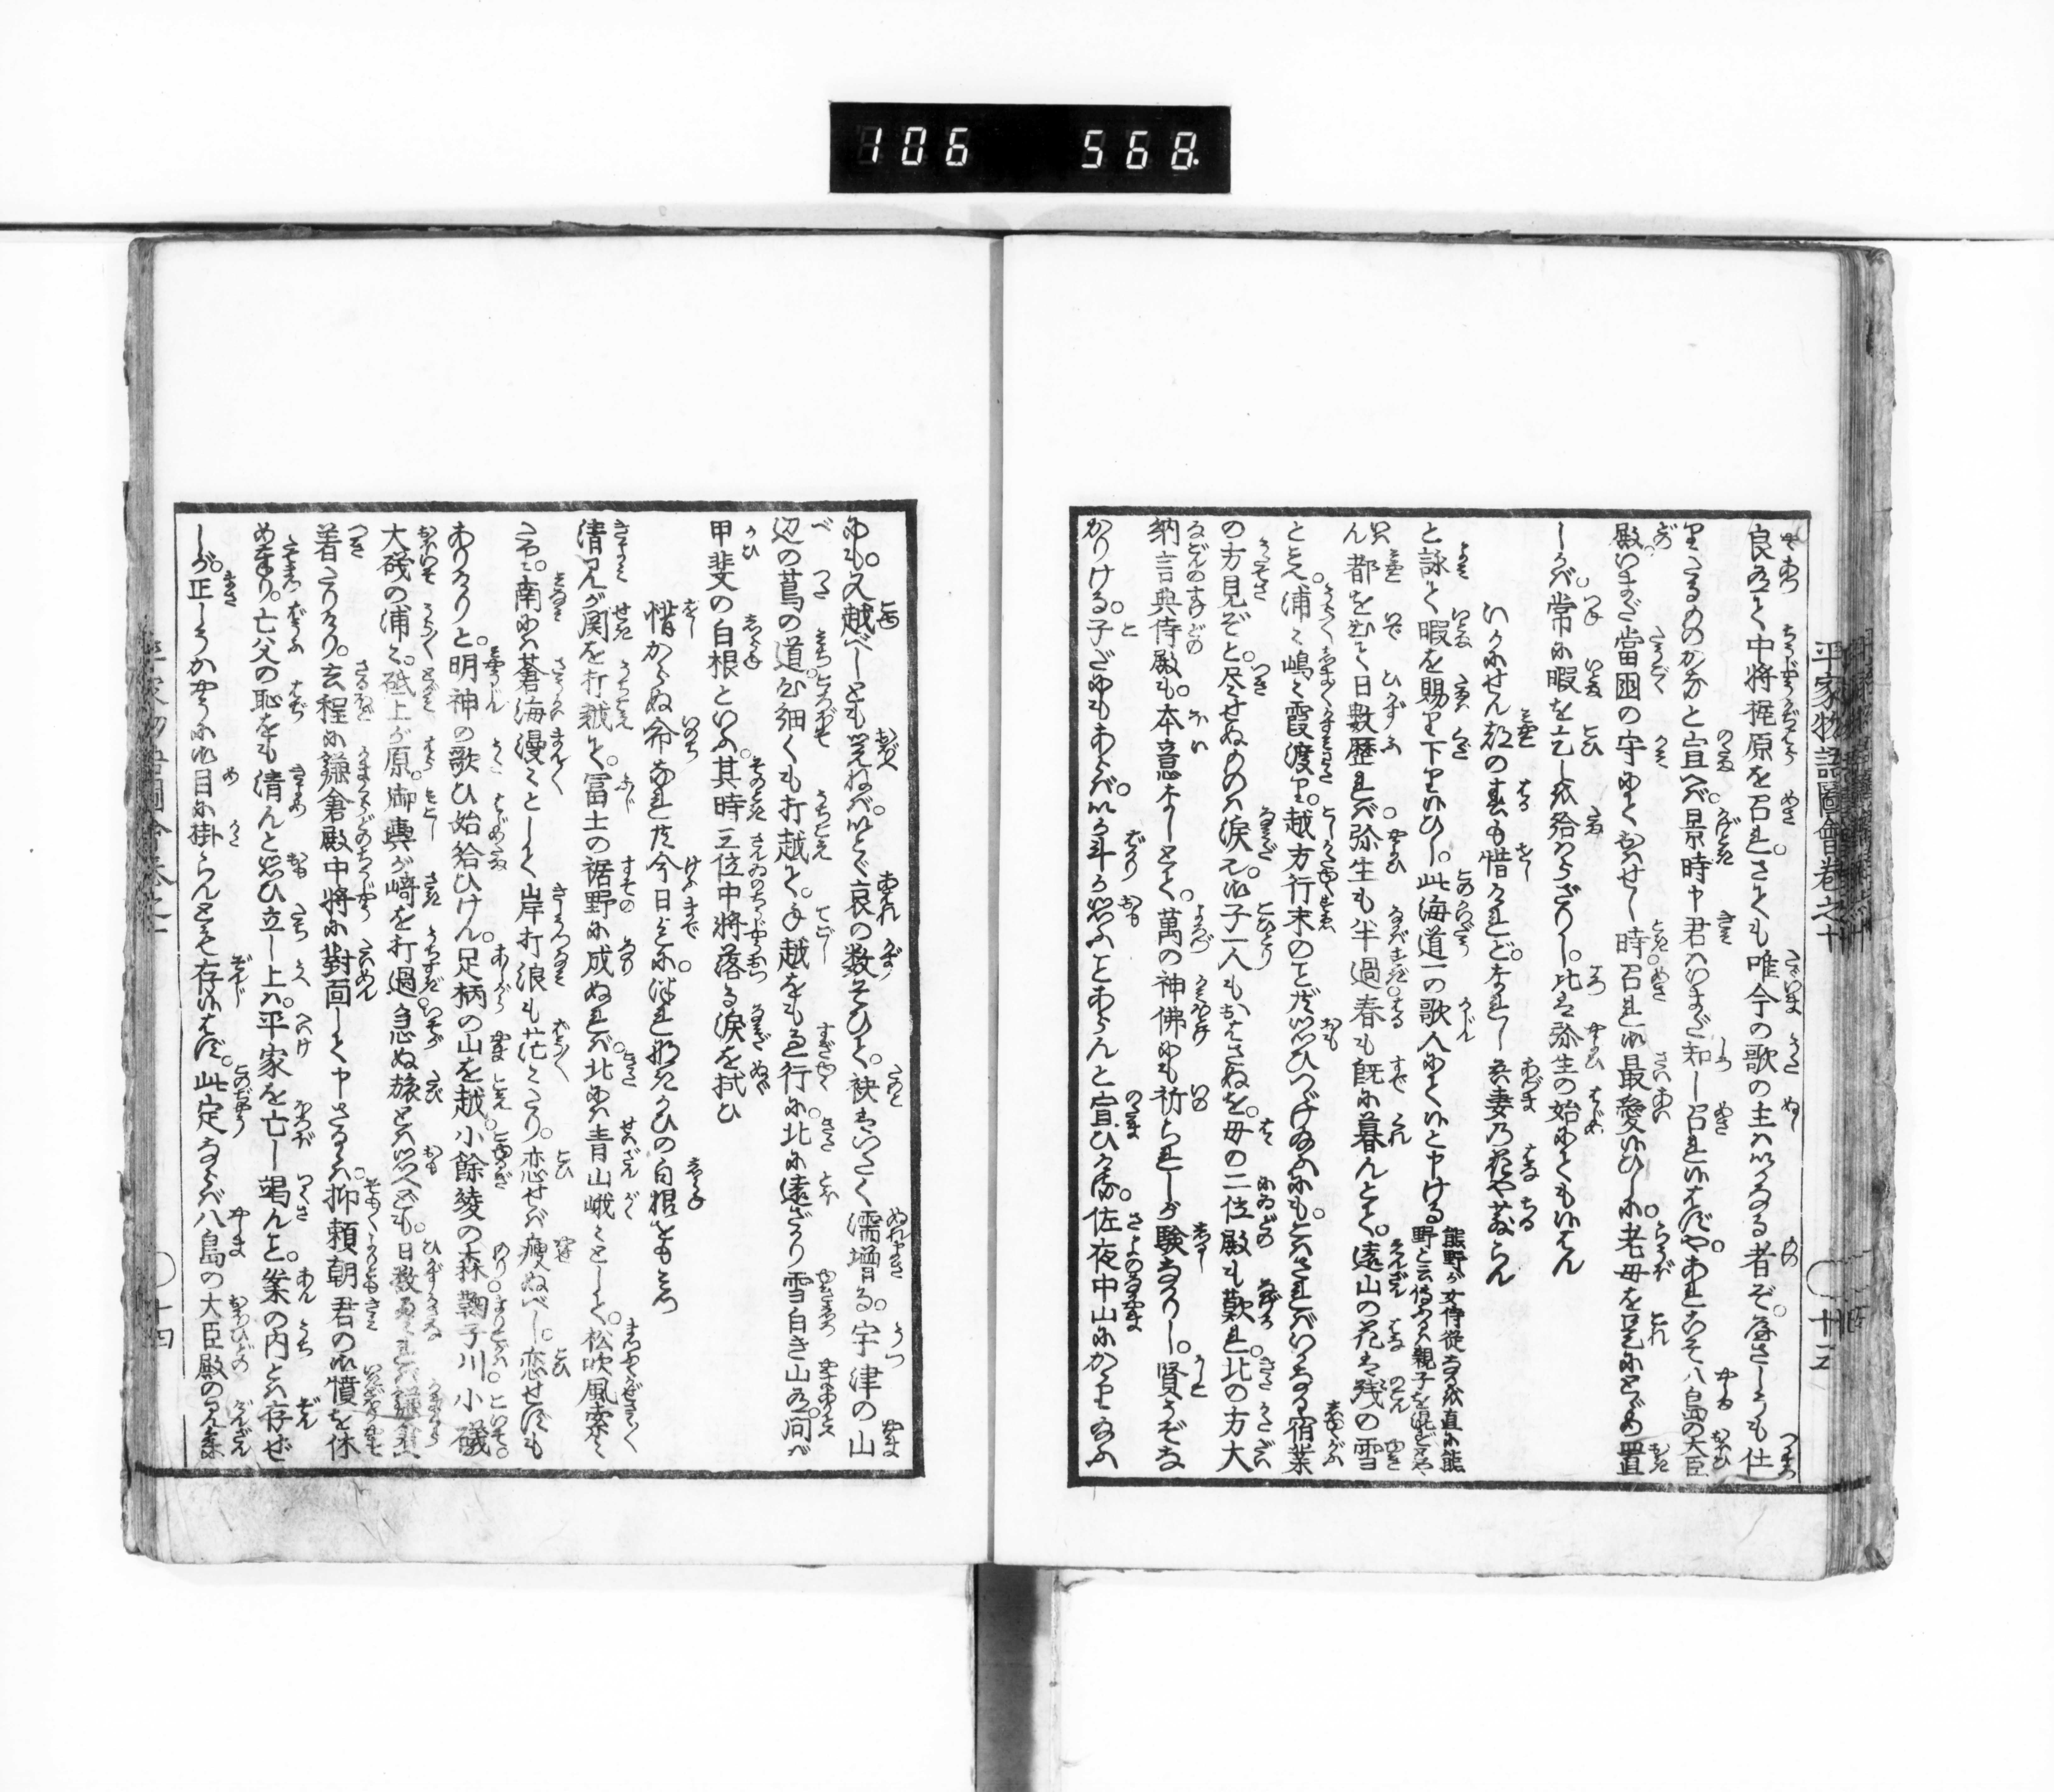 106 568
平家物語圖會巻之十 十三
良有て中将梶原を召れ。さても唯今の歌の主はいかなる者ぞ。やさしうも仕
りたるものかなと宣へば。景時申君はいまだ知し召れ候はずや。あれこそ八島の大臣
殿いまだ當国の守にておはせし時。召れ御最愛候ひしに。老母を是にとゞめ置
しかば。常に暇を乞しに給はらざりし。比は弥生の始にても候はん
いかにせん都の春も惜けれど。なれし吾妻乃花や散らん
と詠て暇を賜り下り候ひし。此海道一の歌人にて候と申ける
熊野が女侍従なるに直に熊
野と云傳るは親子を混ぜしや
ん都を出て日数歴れば弥生も半過春も既に暮んとす。遠山の花は残の雪
と見え。浦々嶋々霞渡り。越方行末のことども思ひつゞけ給ふにも。こはさればいかなる宿業
の方見ぞと。尽せぬものは涙也。御子一人もおはさぬを。母の二位殿も歎れ。北の方大
納言典侍殿も。本意なしとて。萬の神佛にも祈られしが験なかりし。賢うぞな
かりける。子だにもあらば。いか斗か思ふことあらんと宣ひける。佐夜中山にかゝり給ふ
にも。又越べしとも覚ねば。いとゞ哀の数そひて。袂はいたく濡増る。宇津の山
辺の蔦の道。心細くも打越て。手越をも過行に。北に遠ざかり雪白き山有。問ば
甲斐の白根といふ。其時三位中将落る涙を拭ひ
惜からぬ命なれども今日までに。つれなきかひの白根をも見つ
清見が関を打越て。富士の裾野に成ぬれば。北には青山峨々として。松吹風索々
たり。南には蒼海漫々として岸打浪も茫々たり。恋せば痩ぬべし。恋せずも
ありけりと。明神の歌ひ始給ひけん。足柄の山を越。小餘綾の森鞠子川小磯
大磯の浦々。砥上が原。御輿が﨑を打過急ぬ旅とは思へども。日数やう〳〵
着たりけり。去程に鎌倉殿中将に對面して申さるゝは。抑頼朝君の御憤を休
め奉り。亡父の恥をも清んと思ひ立し上は。平家を亡し竭んと。案の内とは存ぜ
しが。正しうか様に御目に掛らんとは存候はず。此定ならば八島の大臣殿の見參
十四